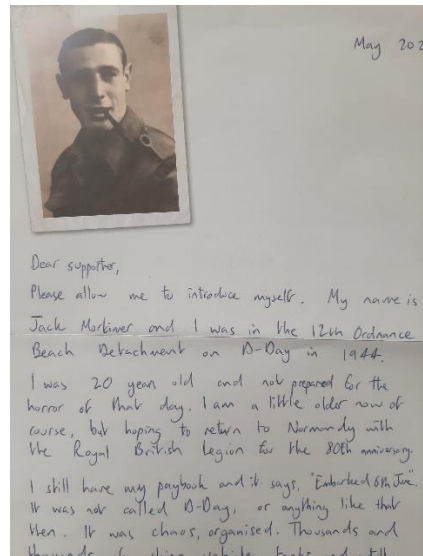 May 202
Dear supporter,
Please allow me to introduce myself. My name is
Jack Mortimer and I was in the 12th Ordnance
Beach Detachment on D-Day in 1944.
I was 20 years old and not prepared for the
horror of that day. I am a little older now of
course, but hoping to return to Normandy with
the Royal British Legion for the 80th anniversary.
I still have my paybook and it says, "Embarked 6th June".
It was not called D-Day, or anything like that
then. It was chaos, organised. Thousands and
thousands